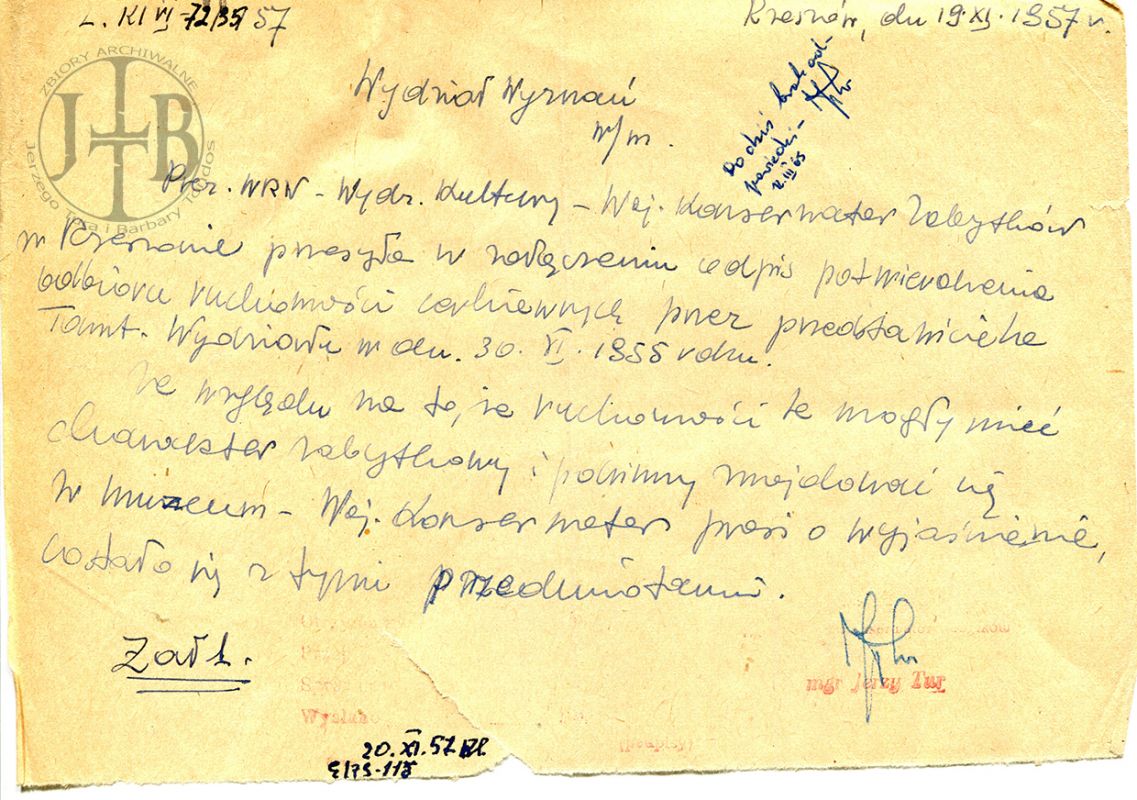 L. Kl VI-72/35/57
Rzeszów, dn 19.XI.1957 r.
ZBIORY ARCHIWALNE
JTB
Jerzego Tura i Barbary Tondos
Wydział Wyznań
w/m.
Do dziś brak od-
powiedzi -
12.III 65
Prez. WRN - Wydz. Kultury - Woj. Konserwator Zabytków
w Rzeszowie przesyła w załączeniu odpis potwierdzenia
odbioru ruchomości cerkiewnych przez przedstawiciela
Tamt. Wydziału w dn. 30. VI. 1955 roku.
Ze względu na to, że ruchomości te mogły mieć
charakter zabytkowy i powinny znajdować się
w muzeum - Woj. Konserwator prosi o wyjaśnienie,
co stało się z tymi przedmiotami.
Zał 1.
mgr Jerzy Tur
Wysłano
(podpis)
20. XI. 57